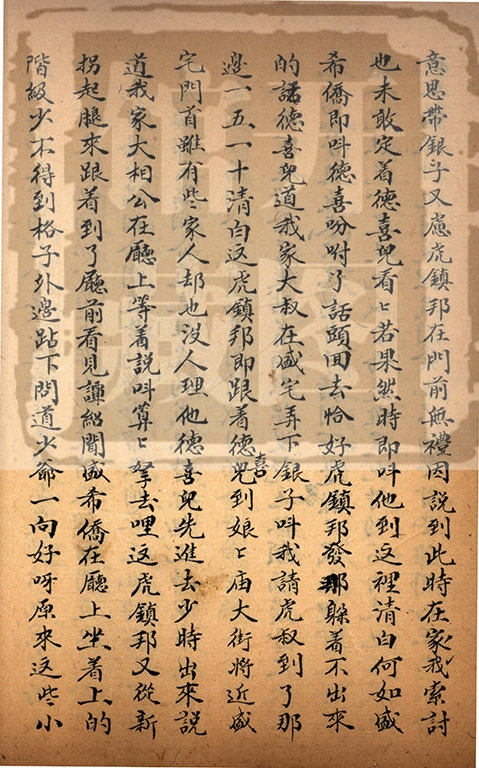 意思帶銀子又慮虎鎮邦在門前無禮因説到此時在家我索討
也未敢定着德喜兒看〻若果然時即呌他到这裡清白何如盛
希僑即呌德喜吩咐了話頭回去恰好虎鎮邦發那躲着不出來
的話德喜兒道我家大叔在盛宅弄下銀子呌我請虎叔到了那
邊一五一十清白这虎鎮邦即跟着德喜兒到娘〻庙大街將近盛
宅門首雖有些家人却也没人理他德喜兒先進去少時出來説
道我家大相公在廳上等着説呌算〻拏去哩这虎鎮邦又從新
拐起腿來跟着到了廳前看見譚紹聞盛希僑在廳上坐着上的
階級少不得到格子外邊跕下問道少爺一向好呀原來这些小